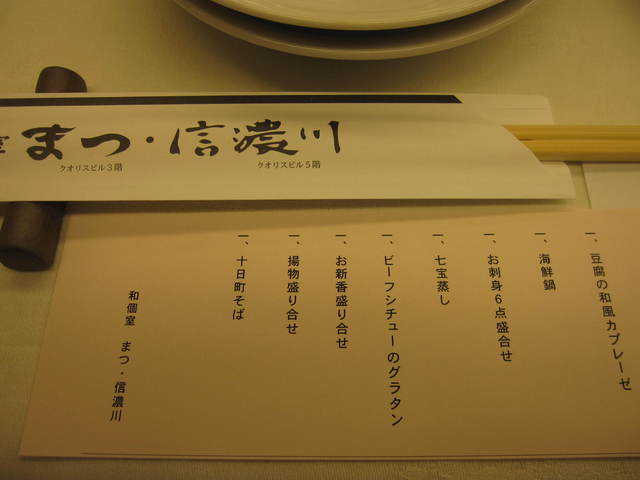 まつ・信濃川
クオリスビル3階
クオリスビル5階
一、豆腐の和風カプレーゼ
一、海鮮鍋
一、お刺身6点盛合せ
一、七宝蒸し
一、ビーフシチューのグラタン
一、お新香盛り合せ
一、揚物盛り合せ
一、十日町そば
和個室 まつ・信濃川